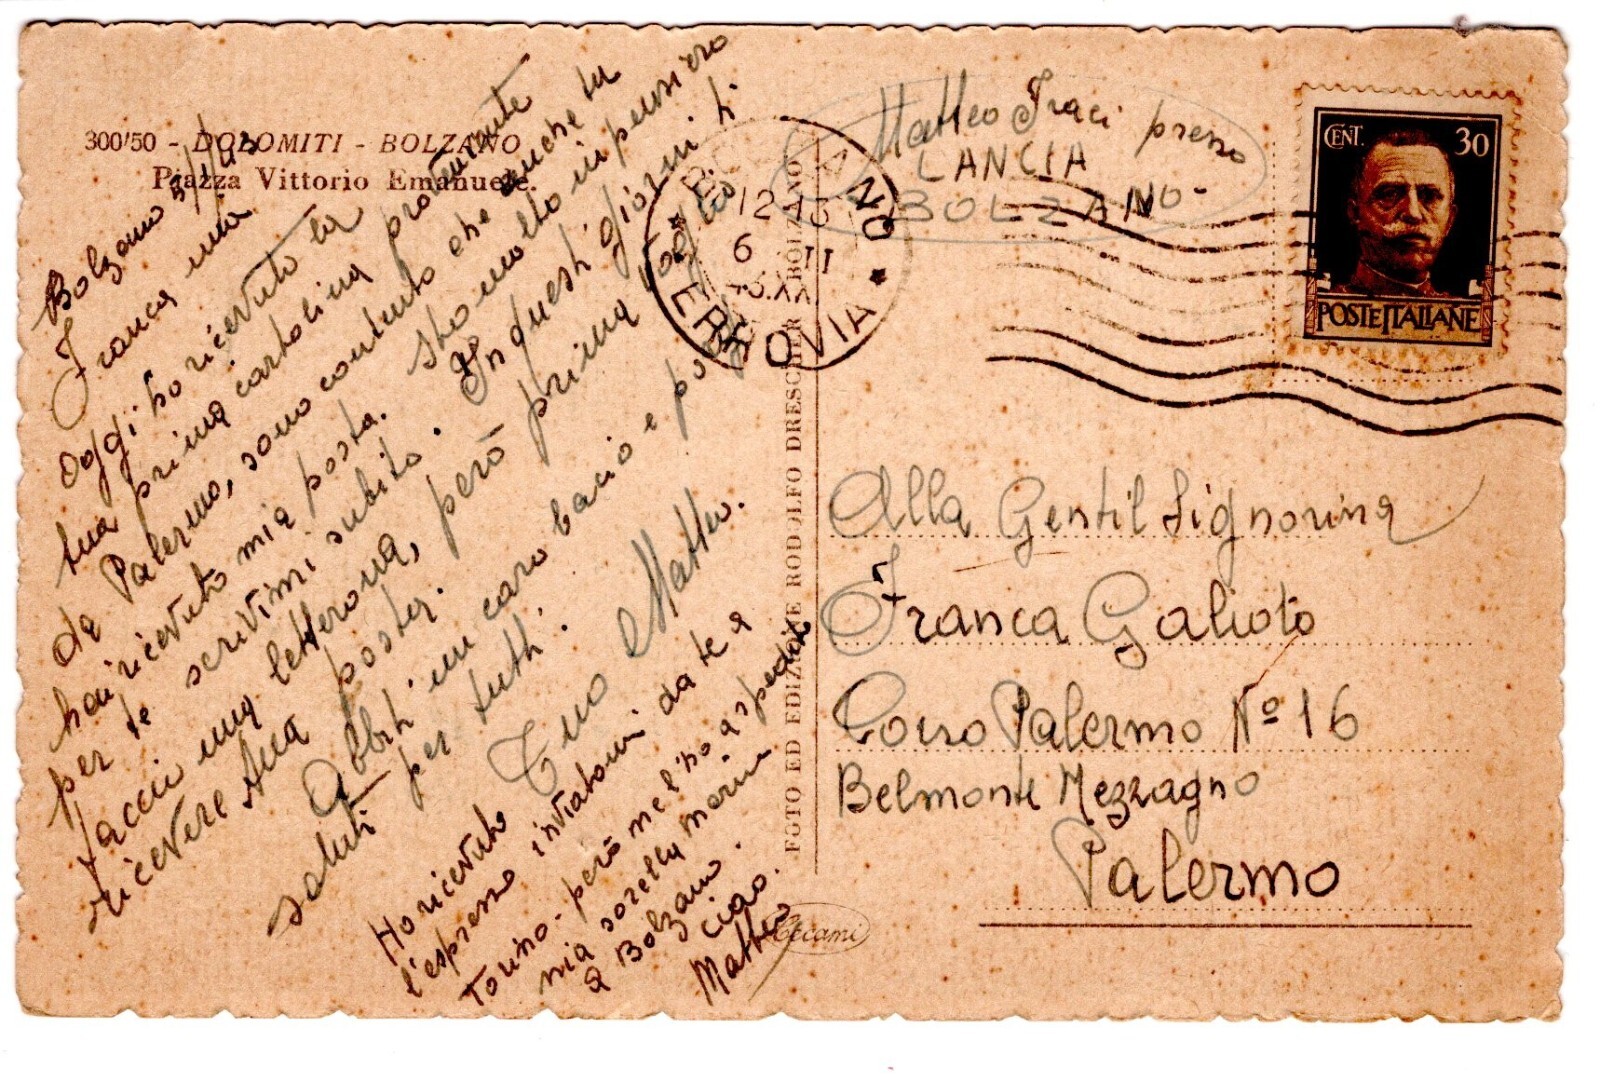 300/50 - DOLOMITI - BOLZANO
Piazza Vittorio Emanuele.
Bolzano
Franca mia
oggi ho ricevuto la
tua prima cartolina proveniente
da Palermo, sono contento che anche tu
hai ricevuto mia posta. Sto molto in pensiero
per te scrivimi subito. In questi giorni ti
faccio una letterona, però prima voglio
ricevere tua posta.
Abbiti un caro bacio e
saluti per tutti.
Tuo Matteo.
Ho ricevuto
l'espresso inviatomi da te a
Torino - però me l'ha spedito
mia sorella
a Bolzano.
Ciao.
Matteo
FOTO ED EDIZIONE RODOLFO DRESCHER BOLZANO
Cecami
Matteo Traci presso
LANCIA
BOLZANO -
BOLZANO
12
6 II
XX
FERROVIA
CENT. 30
POSTE ITALIANE
Alla Gentil Signorina
Franca Galioto
Corso Palermo Nº 16
Belmonte Mezzagno
Palermo